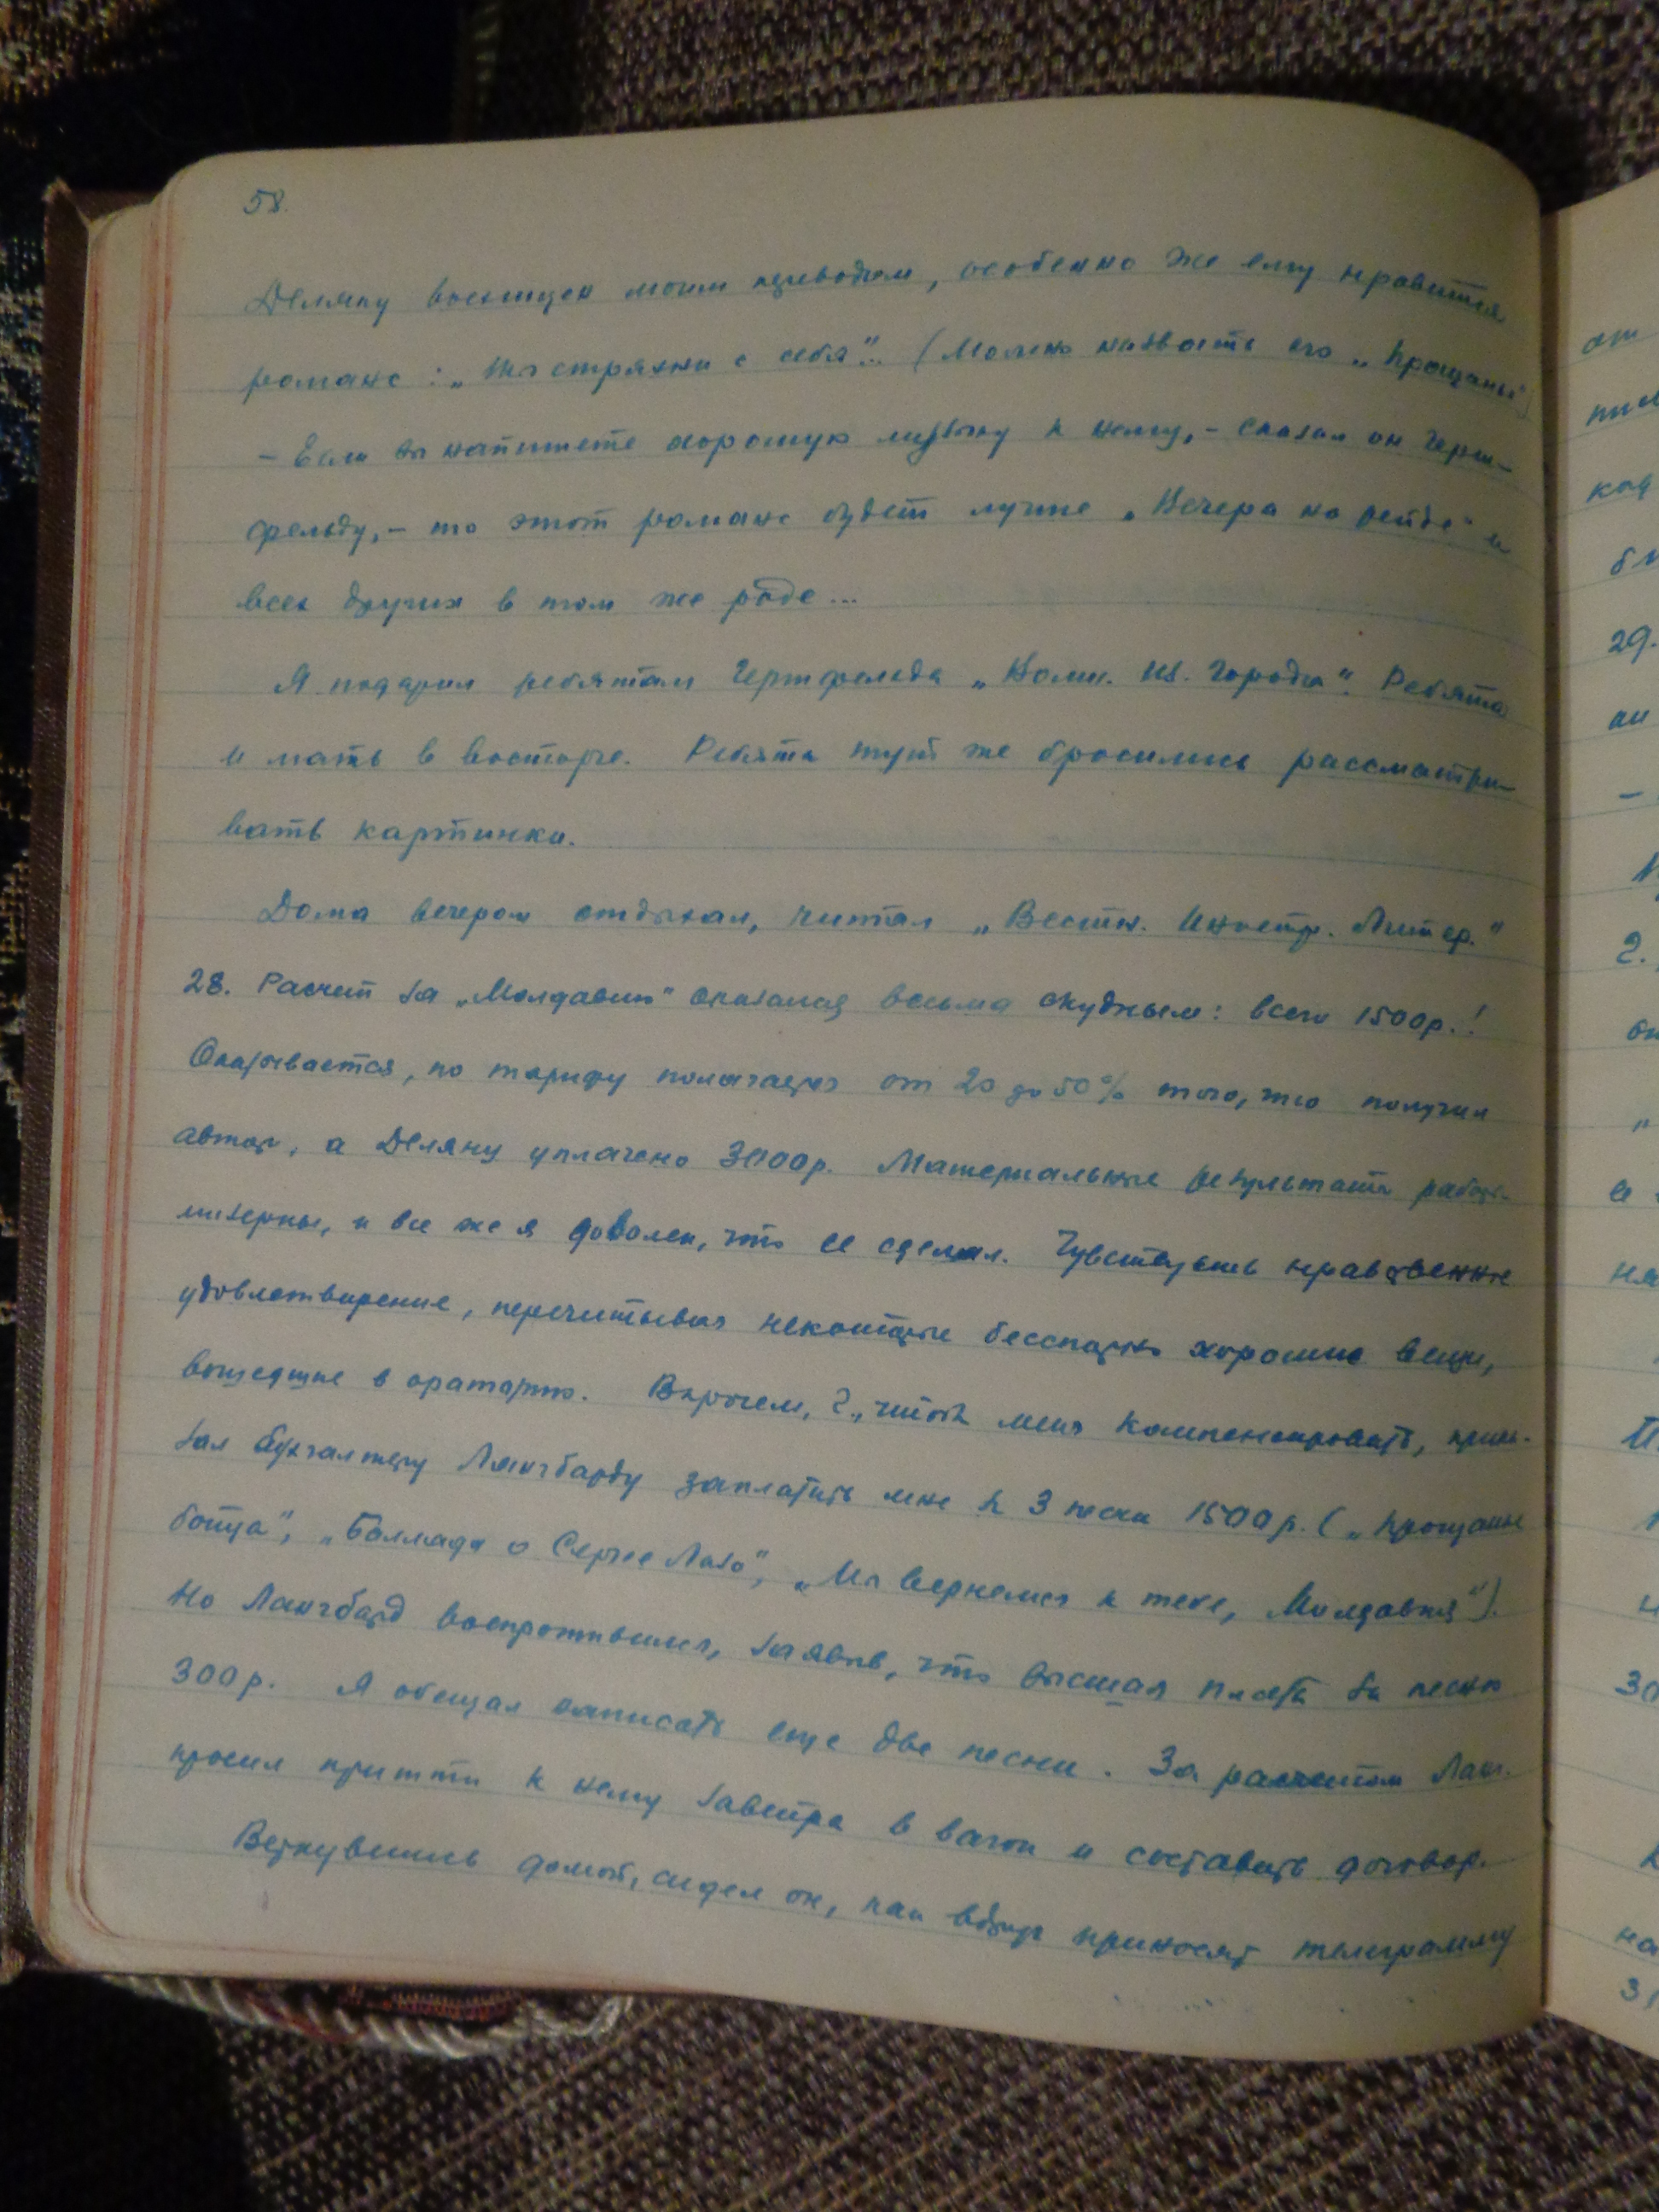 58.
Деляну восхищен моим переводом, особенно же ему нравится
романс: „Ты стряхни с себя"... (Можно назвать его „Прощанье")
– Если вы напишете хорошую музыку к нему, – сказал он Герш-
фельду, – то этот романс будет лучше „Вечера на рейде" и
всех других в том же роде...
Я подарил ребятам Гершфельда „Волш. Из. Города". Ребята
и мать в восторге. Ребята тут же бросились рассматри-
вать картинки.
Дома вечером отдыхал, читал „Вестн. Иностр. Литер."
28. Расчет за „Молдавию" оказался весьма скудным: всего 1500р.!
Оказывается, по тарифу полагается от 20 до 50% того, что получил
автор, а Деляну уплачено 3000р. Материальные результаты работы
мизерны, и все же я доволен, что ее сделал. Чувствуешь нравственное
удовлетворение, перечитывая некоторые бесспорно хорошие вещи,
вошедшие в ораторию. Впрочем, Г., чтобы меня компенсировать, прика-
зал бухгалтеру Лангбарду заплатить мне за 3 песни 1500р. („Прощание
бойца", „Баллада о Сергее Лазо", „Мы вернемся к тебе, Молдавия").
Но Лангбард воспротивился, заявив, что высшая плата за песню
300р. Я обещал написать еще две песни. За расчетом Ланг.
просил притти к нему завтра в вагон и составить договор.
Вернувшись домой, сидел он, как вдруг приносят телеграмму